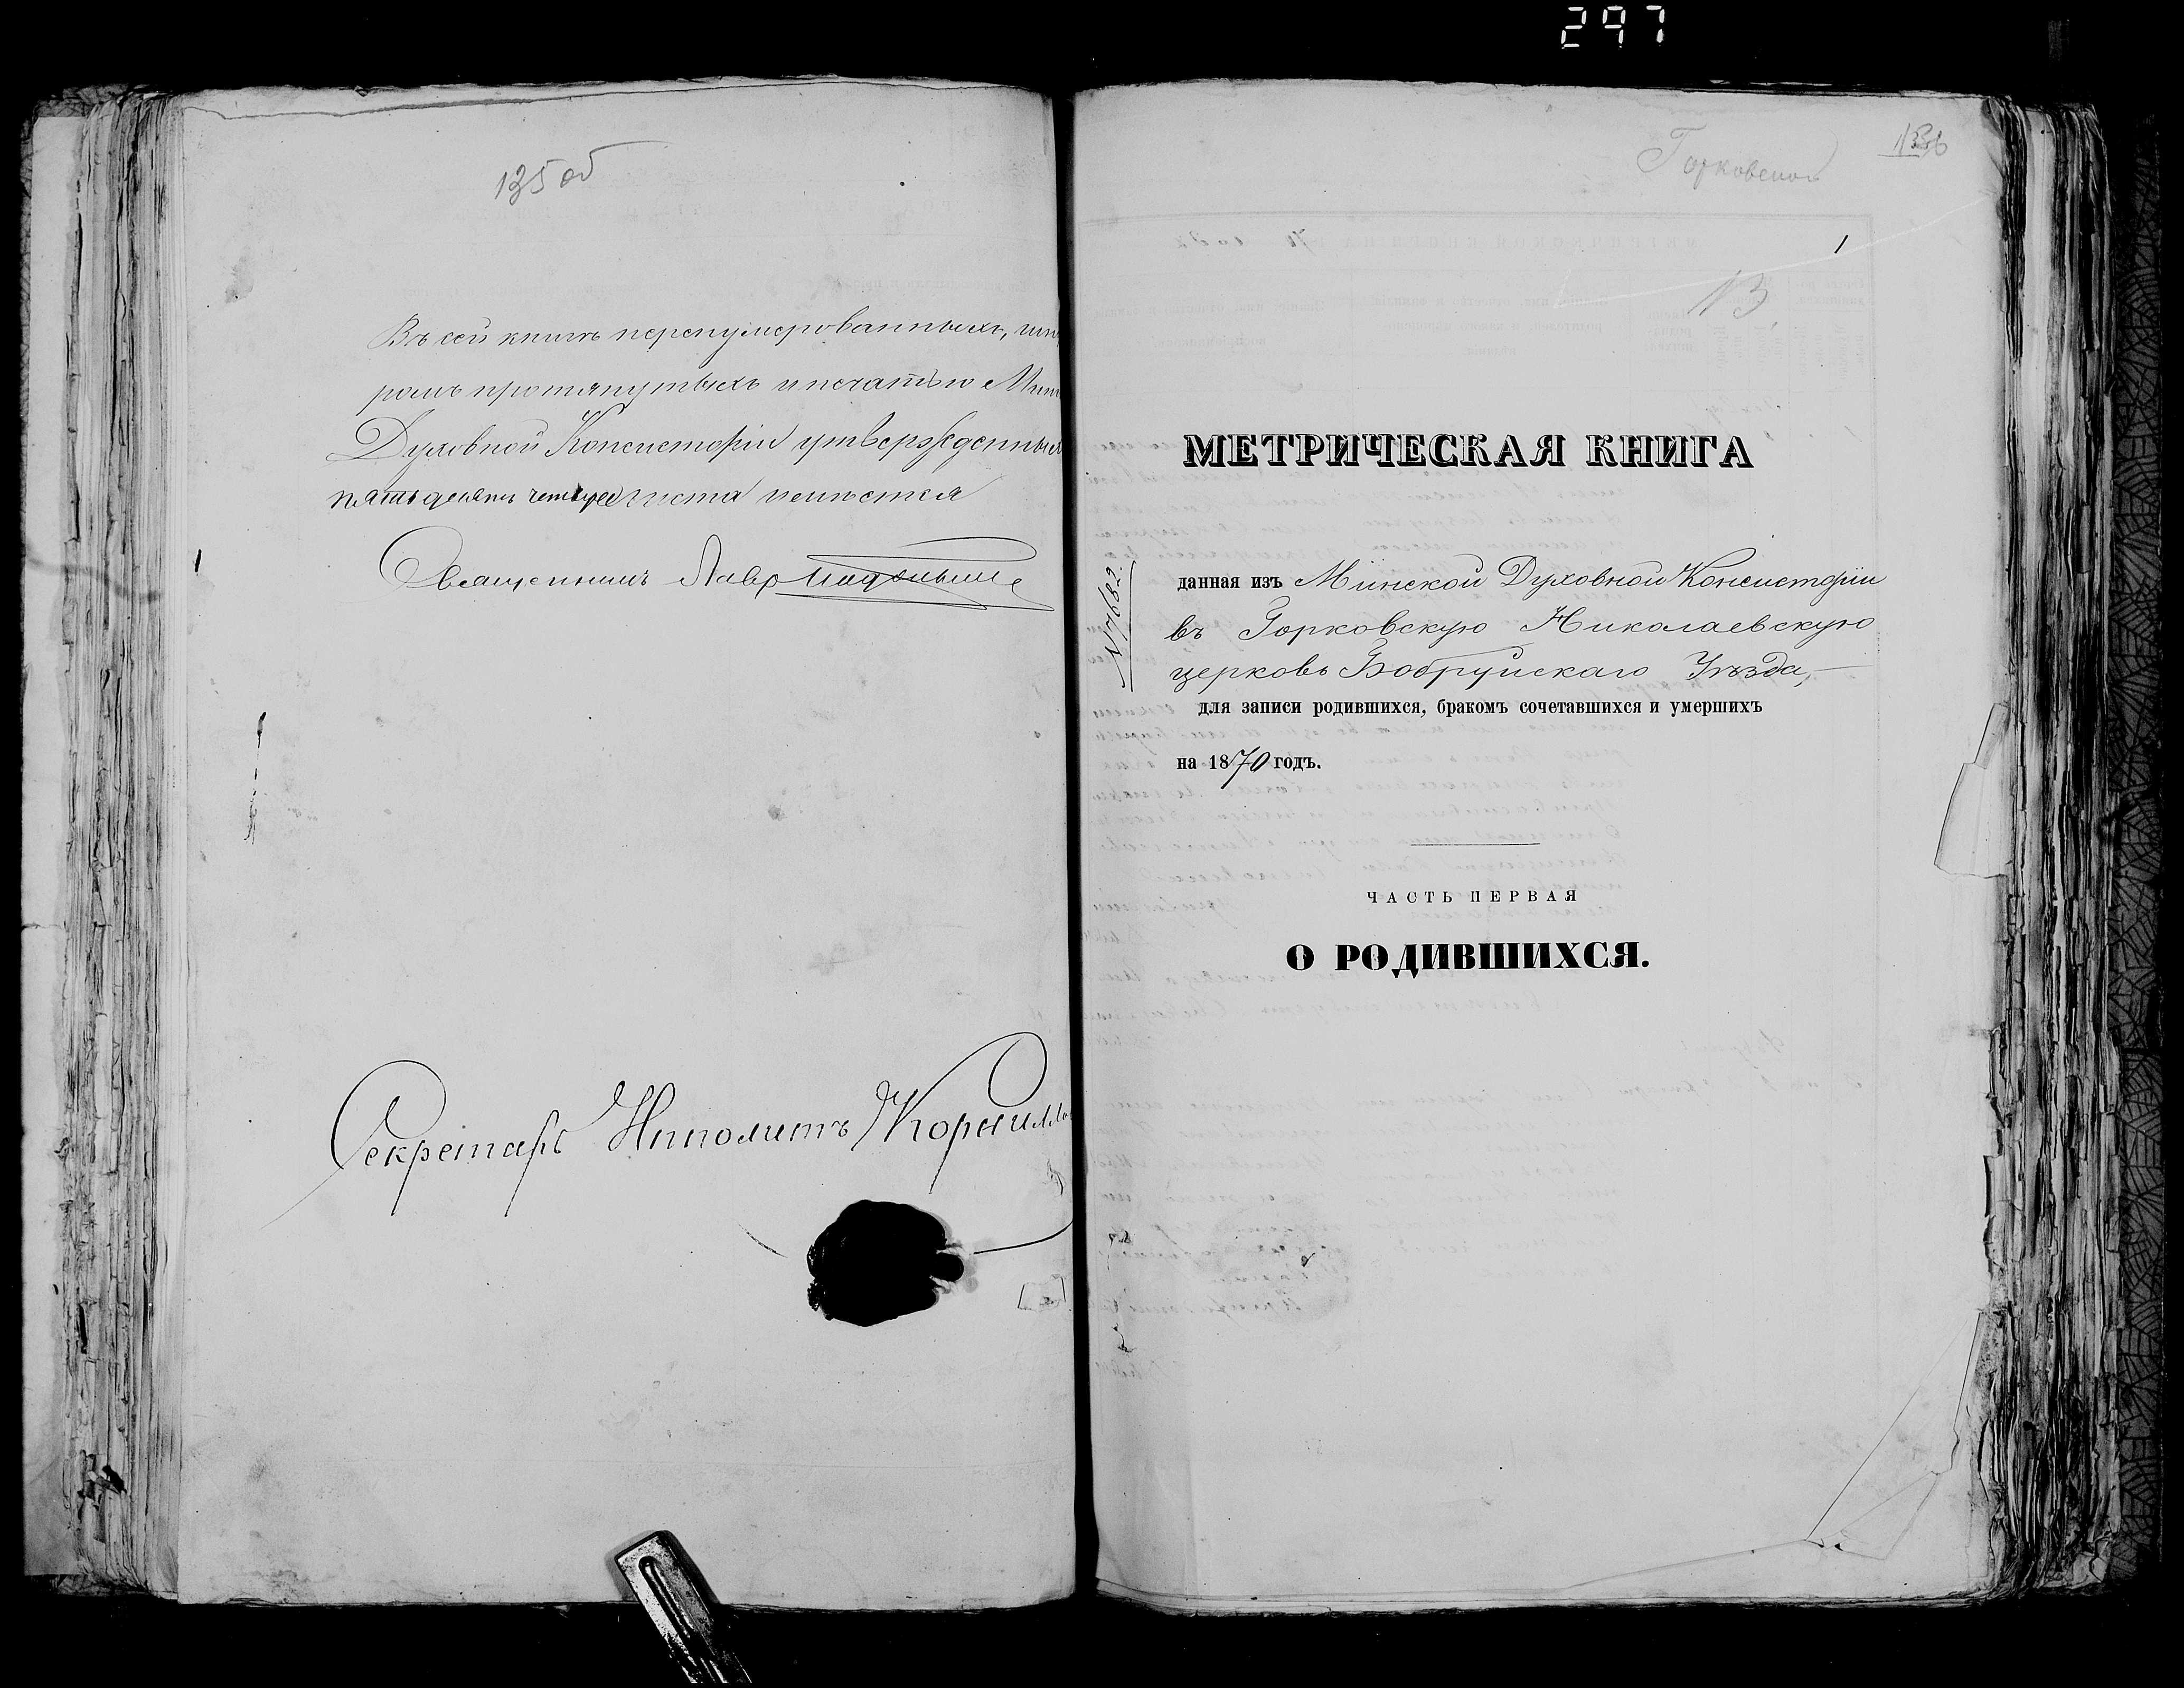 297
135 об
Въ сей книгѣ перенумерованныхъ, шну
ромъ протянутыхъ и печатью Минс
Духовной Консисторіи утвержденныхъ
пятьдесятъ четыре листа
Священникъ Лавр
Секретарь Ипполитъ Корнилло
Горковской
136
1
13
МЕТРИЧЕСКАЯ КНИГА
№ 7682
данная изъ Минской Духовной Консисторіи
въ Горковскую Николаевскую
церковь Бобруйскаго Уѣзда,
для записи родившихся, бракомъ сочетавшихся и умершихъ
на 1870 годъ.
ЧАСТЬ ПЕРВАЯ
О РОДИВШИХСЯ.